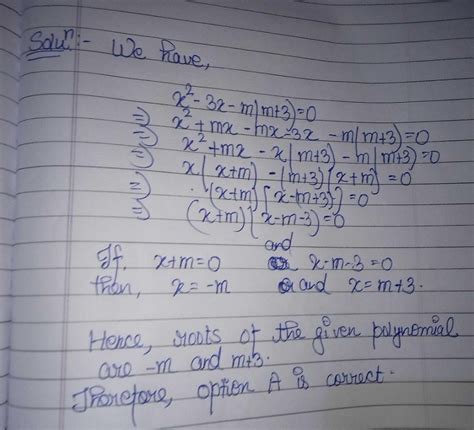 Soluⁿ:- We have,
x² - 3x - m(m+3)=0
⇒ x² + mx - mx - 3x - m(m+3)=0
⇒ x² + mx - x(m+3) - m(m+3)=0
⇒ x(x+m) - (m+3)(x+m)=0
⇒ (x+m)[x-(m+3)]=0
⇒ (x+m)(x-m-3)=0
and
If x+m=0 x-m-3=0
then, x=-m and x=m+3.
Hence, roots of the given polynomial
are -m and m+3.
Therefore, option A is correct.